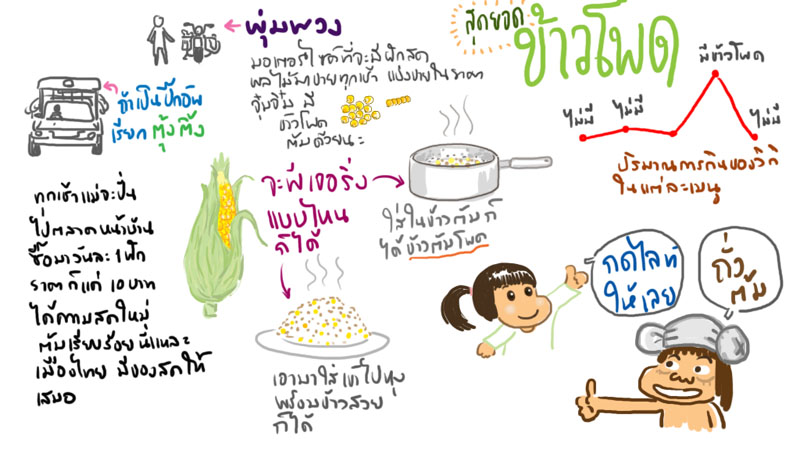 สุดยอด
ข้าวโพด
พุ่มพวง
มอเตอร์ไซค์ที่จะมีผักสด
ผลไม้มาขายทุกเช้า แบ่งขายในราคา
จุ๋มจิ๋ม มี
ข้าวโพด
ต้มด้วยนะ
ถ้าเป็นปิ๊กอัพ
เรียก ตุ้งติ้ง
ทุกเช้าแม่จะปั่น
ไปตลาดหน้าบ้าน
ซื้อมาวันละ 1 ฝัก
ราคาก็แค่ 10 บาท
ได้ความสดใหม่
ต้มเรียบร้อย นี่แหละ
เมืองไทย มีของสดให้
เสมอ
จะฟีเจอริ่ง
แบบไหน
ก็ได้
ใส่ในข้าวต้มก็
ได้ข้าวต้มโพด
เอามาใส่เข้าไปหุง
พร้อมข้าวสวย
ก็ได้
ไม่มี
ไม่มี
มีข้าวโพด
ไม่มี
ปริมาณการกินของวิกกี้
ในแต่ละเมนู
กดไลท์
ให้เลย
ถั่ง
ต้ม